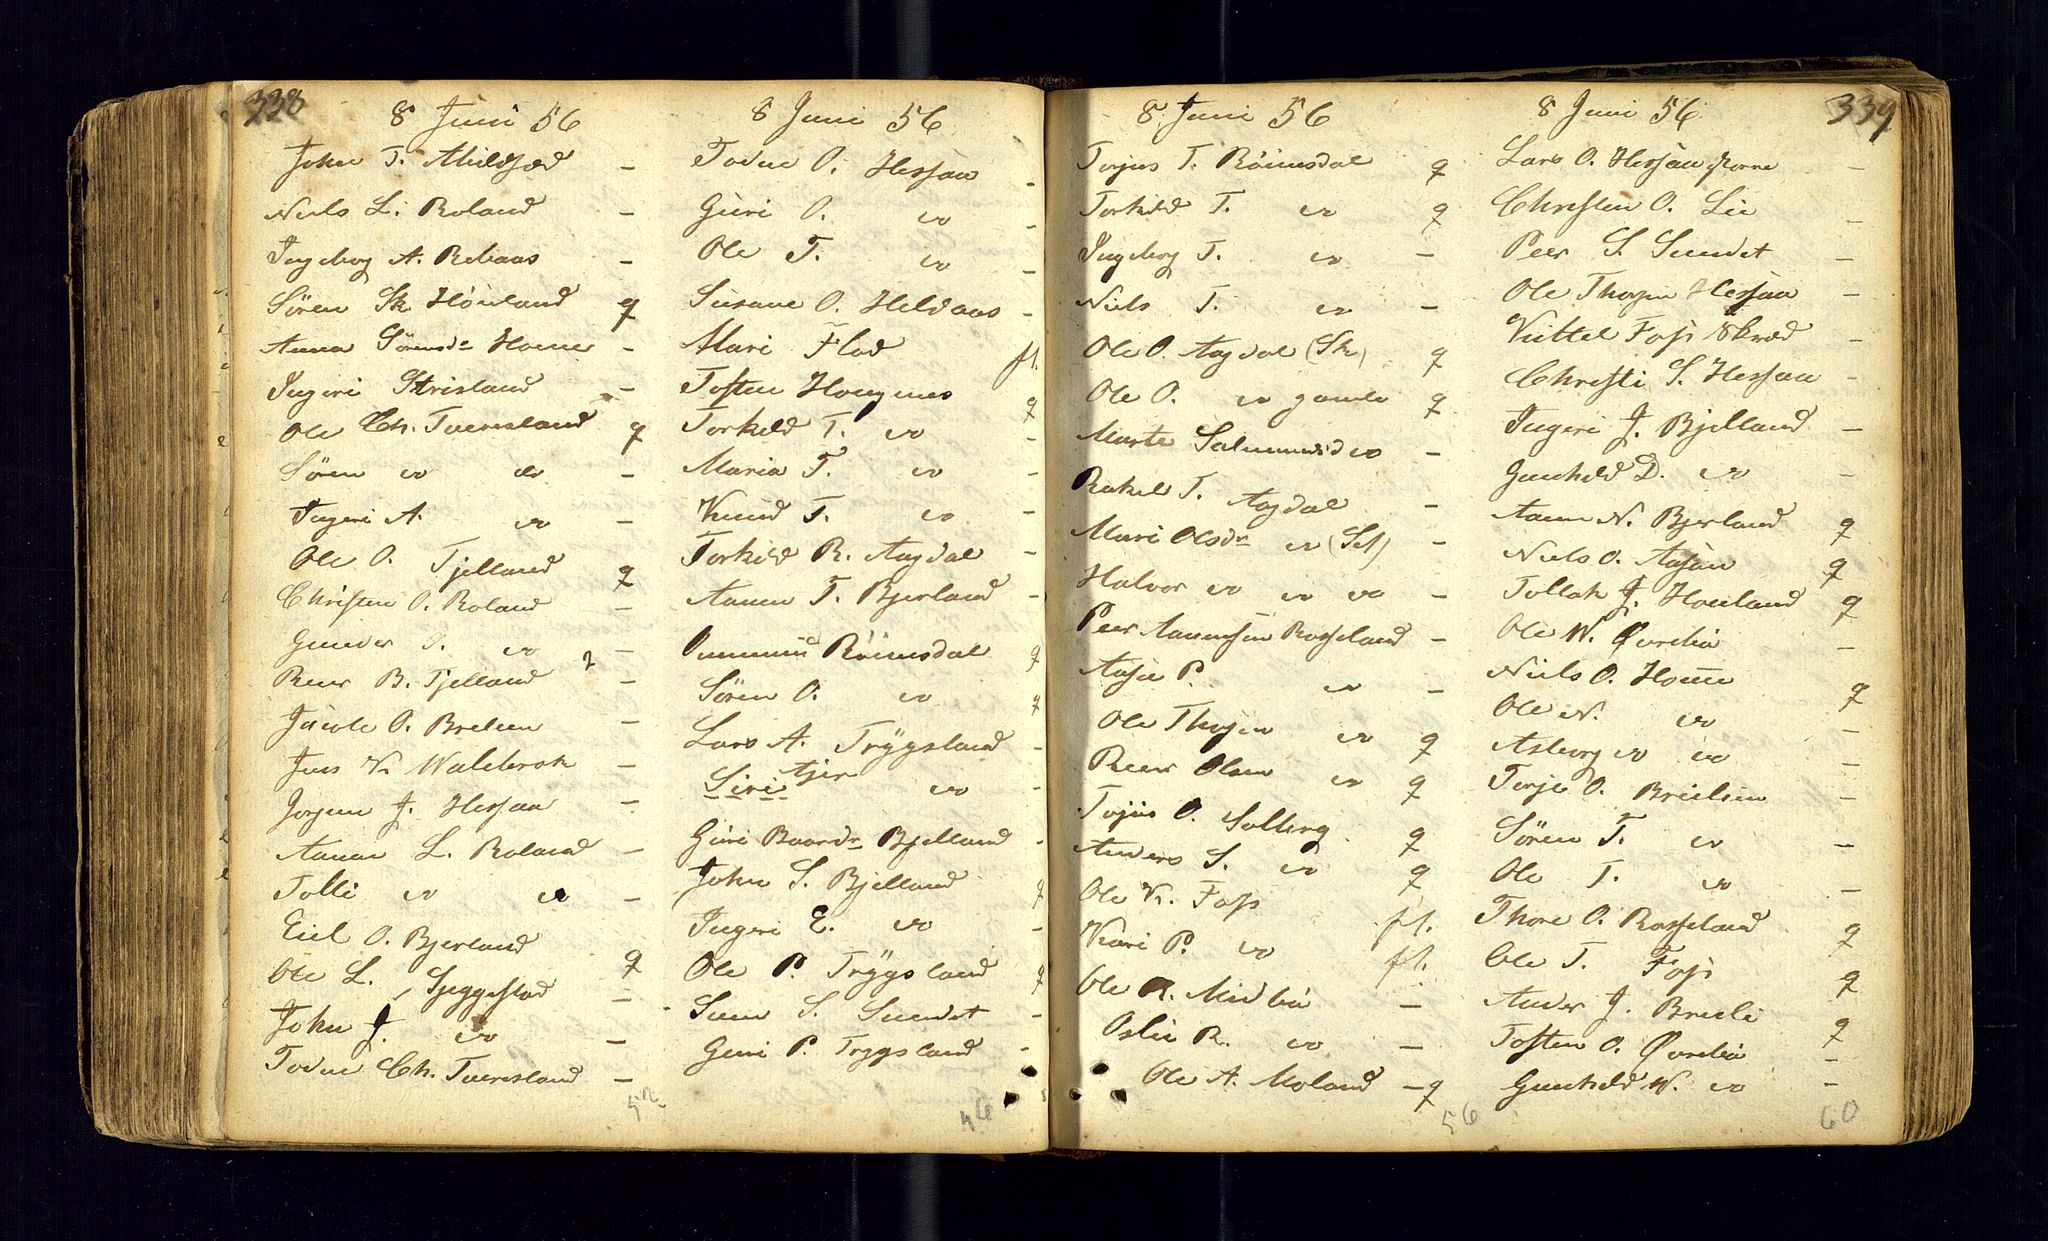 338
8 Juni 56
John T. Mildfjed -
Niels L. Roland -
Ingeborg A. Rebaas -
Sören Sk Höuland q
Anna Sörensdr Homer -
Ingeri Strisland -
Ole Ch. Tveresland q
Sören do do -
Ingeri A. do -
Ole O. Tjelland q
Christen O. Roland -
Gunder S. do -
Reier B. Tjelland -
Jacob O. Brelien -
Jens N. Walebrok -
Jorgen J. Hessaa -
Aanen L. Roland -
Tolle do do -
Eiel O. Bjerland q
Ole L. Syggestad -
John J. do -
Todne Ch. Tveresland -
8 Juni 56
Todne O. Hessaa -
Guri O. do -
Ole T. do -
Susane O. Heldaas -
Mari Flad fl.
Tosten Hougenes q
Torkild T. do -
Maria T. do -
Knud T. do -
Torkild R. Aagdal -
Aanen T. Bjerland -
Ommund Röinsdal q
Sören O. do q
Lars A. Trygsland -
Siri do -
Guri Baardr Bjelland -
John S. Bjelland q
Ingeri E. do -
Ole P. Trygsland q
S. Sundet -
Guri P. Trygsland -
46
8 Juni 56
Torjus T. Röinsdal q
Torkild T. do q
Ingeborg T. do -
Niels T. do -
Ole O. Aagdal (Sk) q
Ole O. do gamle q
Marte Salmunsd do -
Rakel T. Aagdal -
Mari Olsdr do -
Halvor do do do -
Peer Aanensen Rosseland -
Aase P. do -
Ole Thorsen do q
Reier Olsen do q
Tojus O. Solberg q
Anders S. do q
Ole K. Foss fl.
Kari P. do fl.
Ole R. Midbö -
Oslie R. do -
Ole A. Moland - q
56
339
8 Juni 56
Lars O. Hessaa større -
Christen O. Lie -
Peer S. Sundet -
Ole Thorsen Hessaa -
Kittel Foss -
Christi S. Hessaa -
Ingeri J. Bjelland -
Gunhild D. do -
Aanen N. Bjerland q
Niels O. Aasen q
Tollak J. Houland q
Ole W. Øvrebö -
Niels O. Home q
Ole N. do -
Asborg do do -
Terje O. Brelien -
Sören T. do -
Ole T. do -
Thore O. Rosseland q
Ole T. Foss q
Ander J. Breili q
Tosten O. Øvrebö -
Gunhild W. do -
60